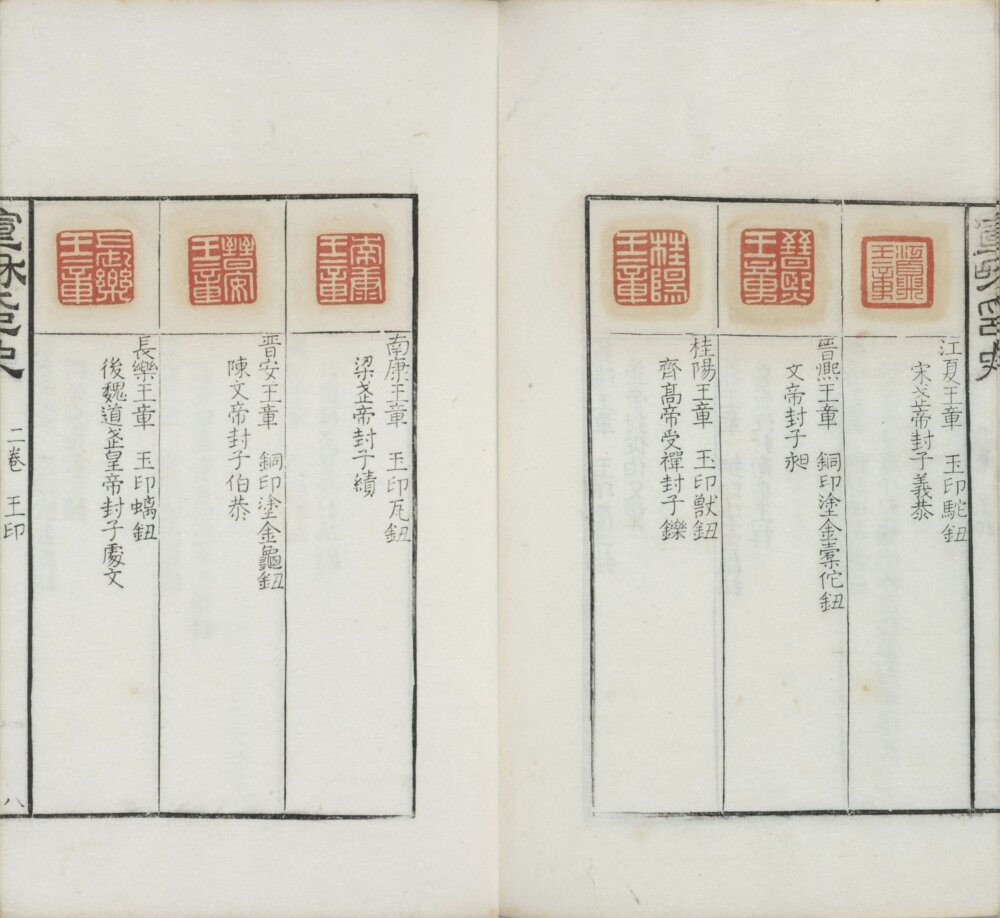 江夏王章
江夏王章　玉印駝鈕
宋武帝封子義恭
晉熙王章
晉熙王章　銅印塗金橐佗鈕
文帝封子昶
桂陽王章
桂陽王章　玉印獸鈕
齊高帝受禪封子鑠
南康王章
南康王章　玉印瓦鈕
梁武帝封子績
晉安王章
晉安王章　銅印塗金龜鈕
陳文帝封子伯恭
長樂王章
長樂王章　玉印螭鈕
後魏道武皇帝封子處文
宣和印史　二卷　王印　八